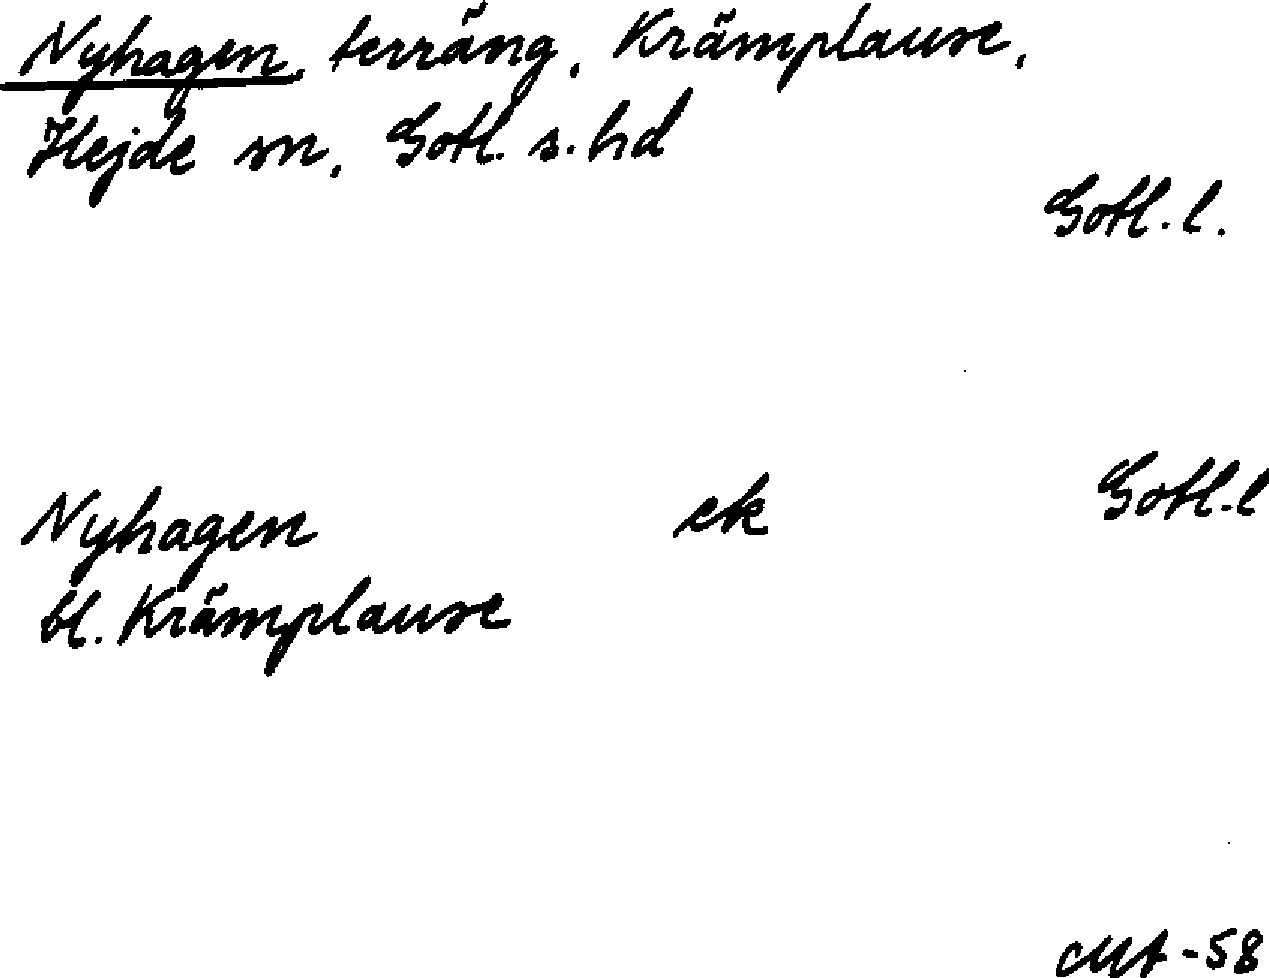 Nyhagen, terräng, Krämplause,
Hejde sn, Gotl. s. hd
Gotl. l.
Nyhagen ek Gotl. l
bl. Krämplause
-58